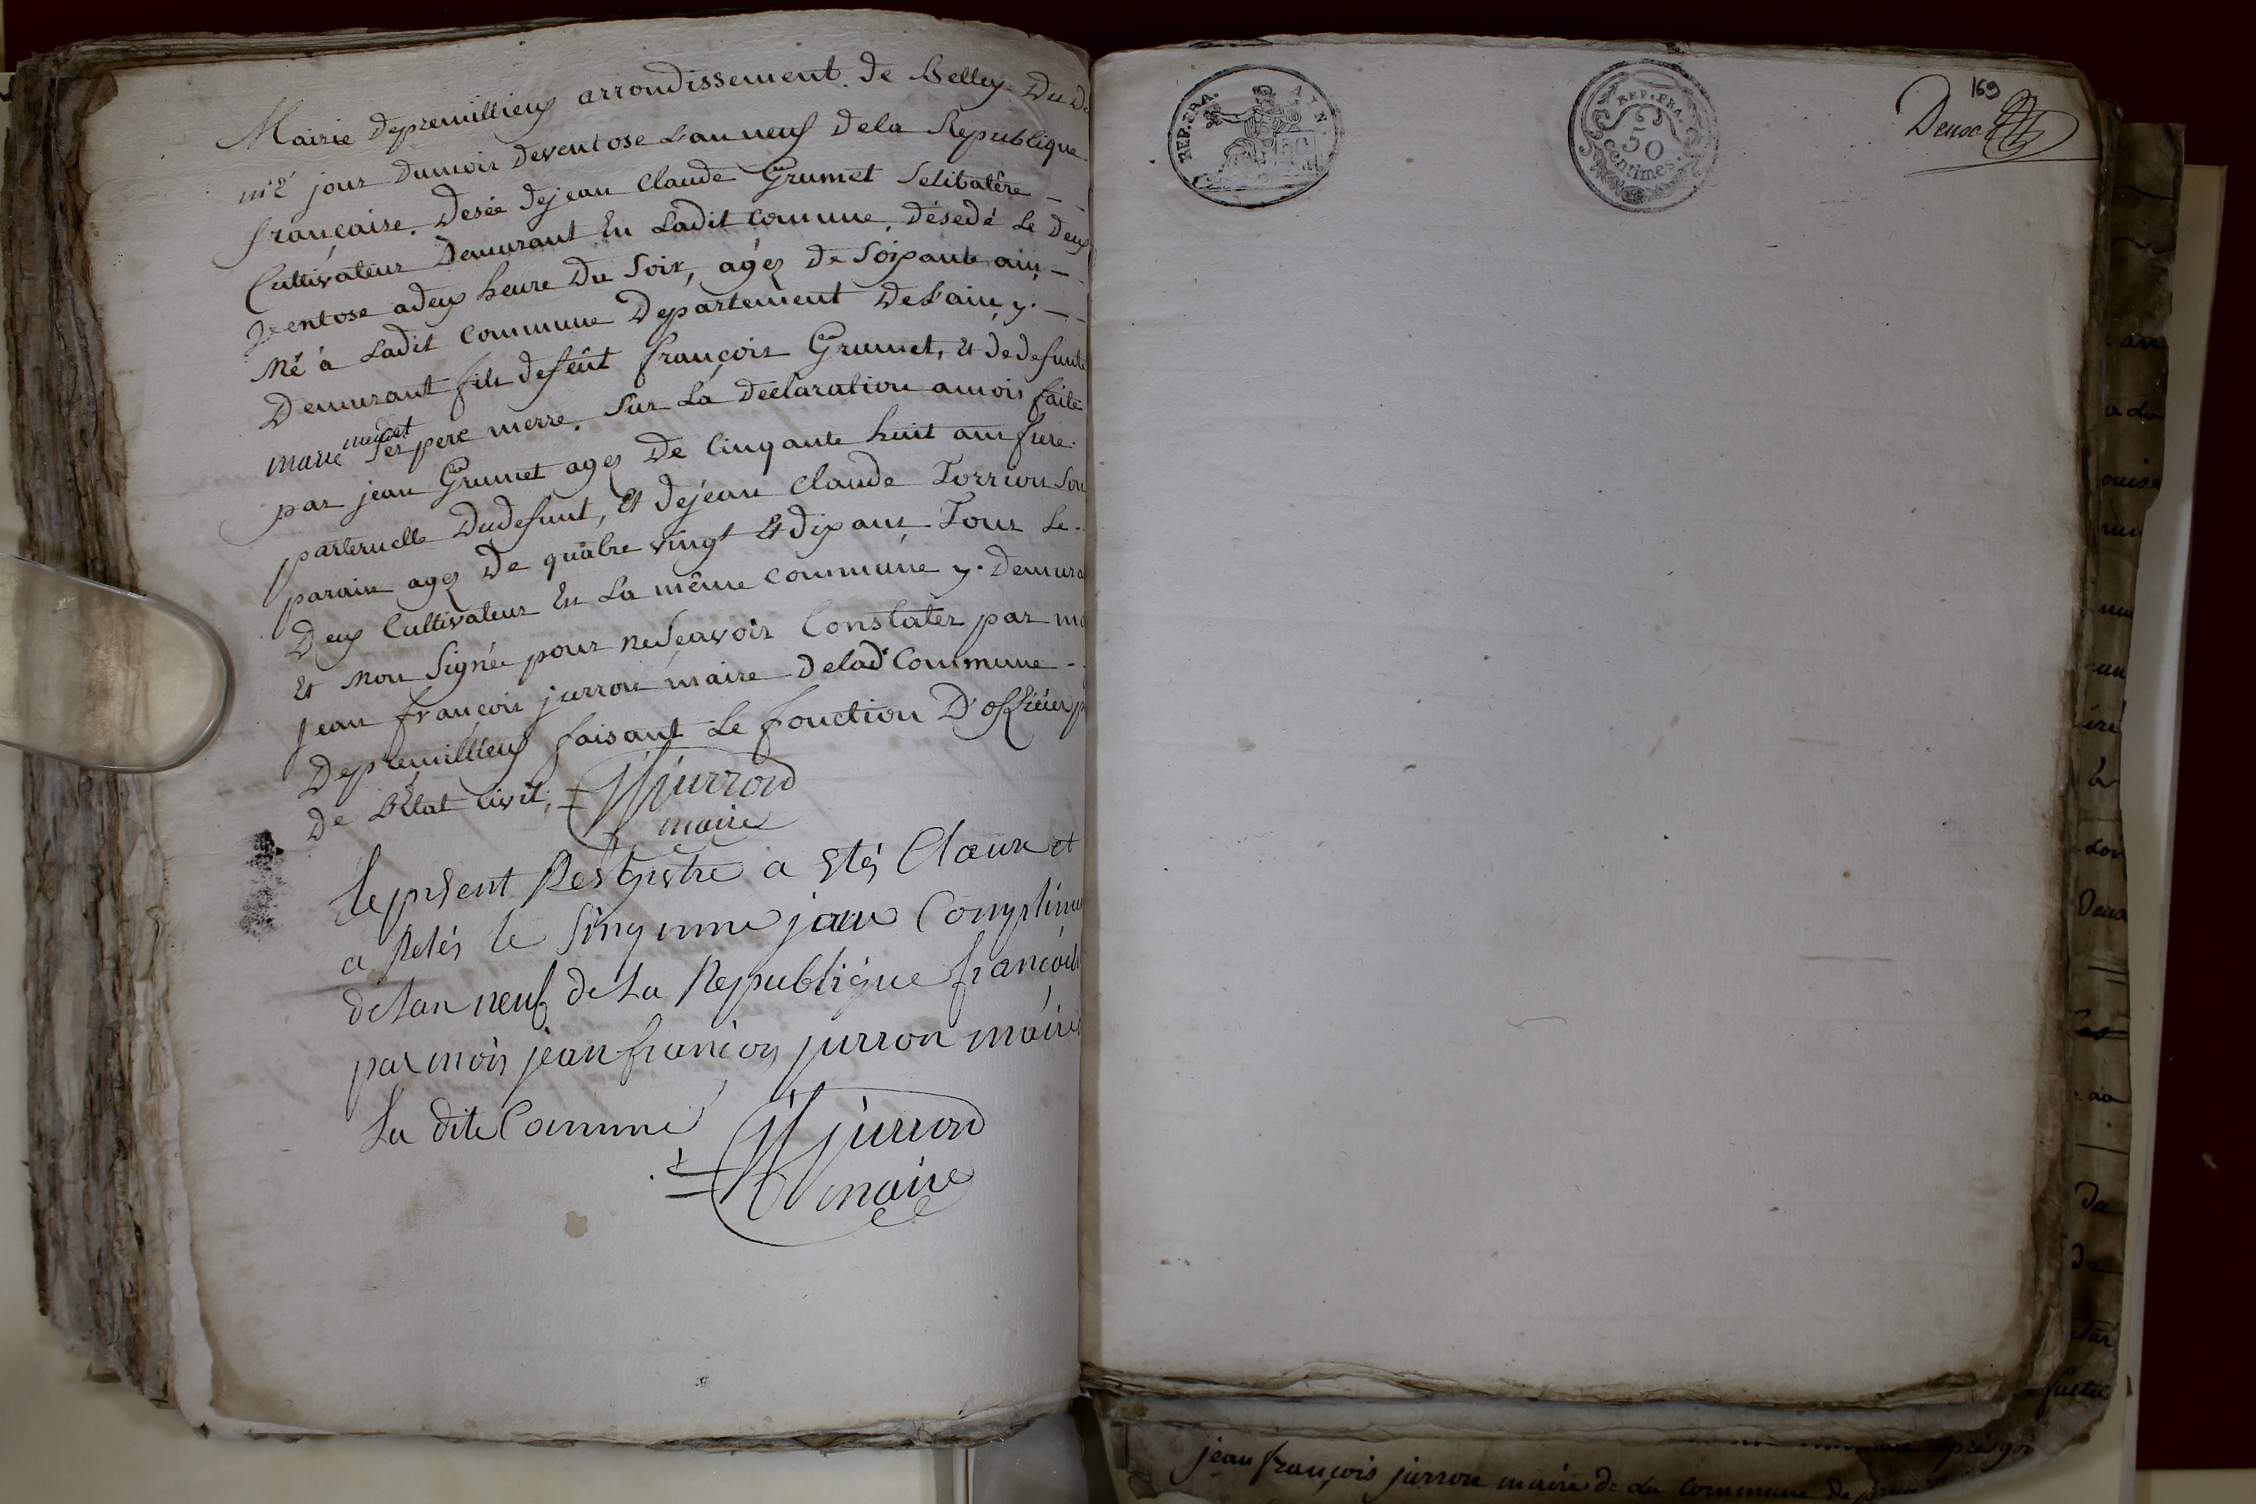 Mairie depremillieux arrondissement de Belley Du
jour dumoir deventose L'an neuf dela Republique
française. Desée dejean Claude Grumet Selibatêre
Cultivateur Demurant En Ladit Commune, Désedé Le Deux
Ventose adeux heure Du Soir, agéz De Soixante ans
Né à Ladit Commune Departement Del'ain, y.
Demurant fils defeüt françois Grumet, Et dedefunte
marie Ses pere merre. Sur La declaration amois faite
par jean Grumet agez De Cinqante huit ans frere
parternelle Dudefunt, Et dejean Claude Torrion Son
parain agez De quatre vingt Et dix ans Tous Le
Deux Cultivateur En La même Commune y. Demura
Et Non Signée pour neseavoir Constater par mo
Jean françois jurron maire delad Commune
Depremillieux faisant Le fonction D'officier p
De L'Etat Civil, JF jurron
maire
le present Registre a Etés Claux et
a Retés le Sinqieme jour Complime
de Lan neuf de La Republique françois
par mois jean françois jurron maire
La dite Commune
JF jurron
maire
REP. FRA. AIN.
REP. FRA.
50
centimes.
169
jean françois jurron maire de La Commune de